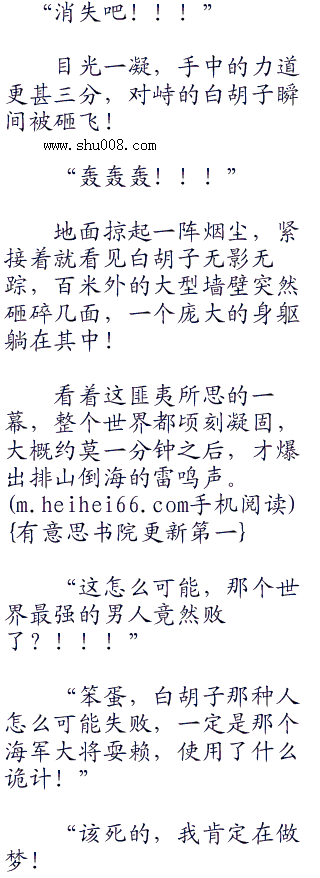 “消失吧！！！”
目光一凝，手中的力道
更甚三分，对峙的白胡子瞬
间被砸飞！
www.shu008.com
“轰轰轰！！！”
地面掠起一阵烟尘，紧
接着就看见白胡子无影无
踪，百米外的大型墙壁突然
砸碎几面，一个庞大的身躯
躺在其中！
看着这匪夷所思的一
幕，整个世界都顷刻凝固，
大概约莫一分钟之后，才爆
出排山倒海的雷鸣声。
(m.heihei66.com手机阅读)
{有意思书院更新第一}
“这怎么可能，那个世
界最强的男人竟然败
了？！！！”
“笨蛋，白胡子那种人
怎么可能失败，一定是那个
海军大将耍赖，使用了什么
诡计！”
“该死的，我肯定在做
梦！